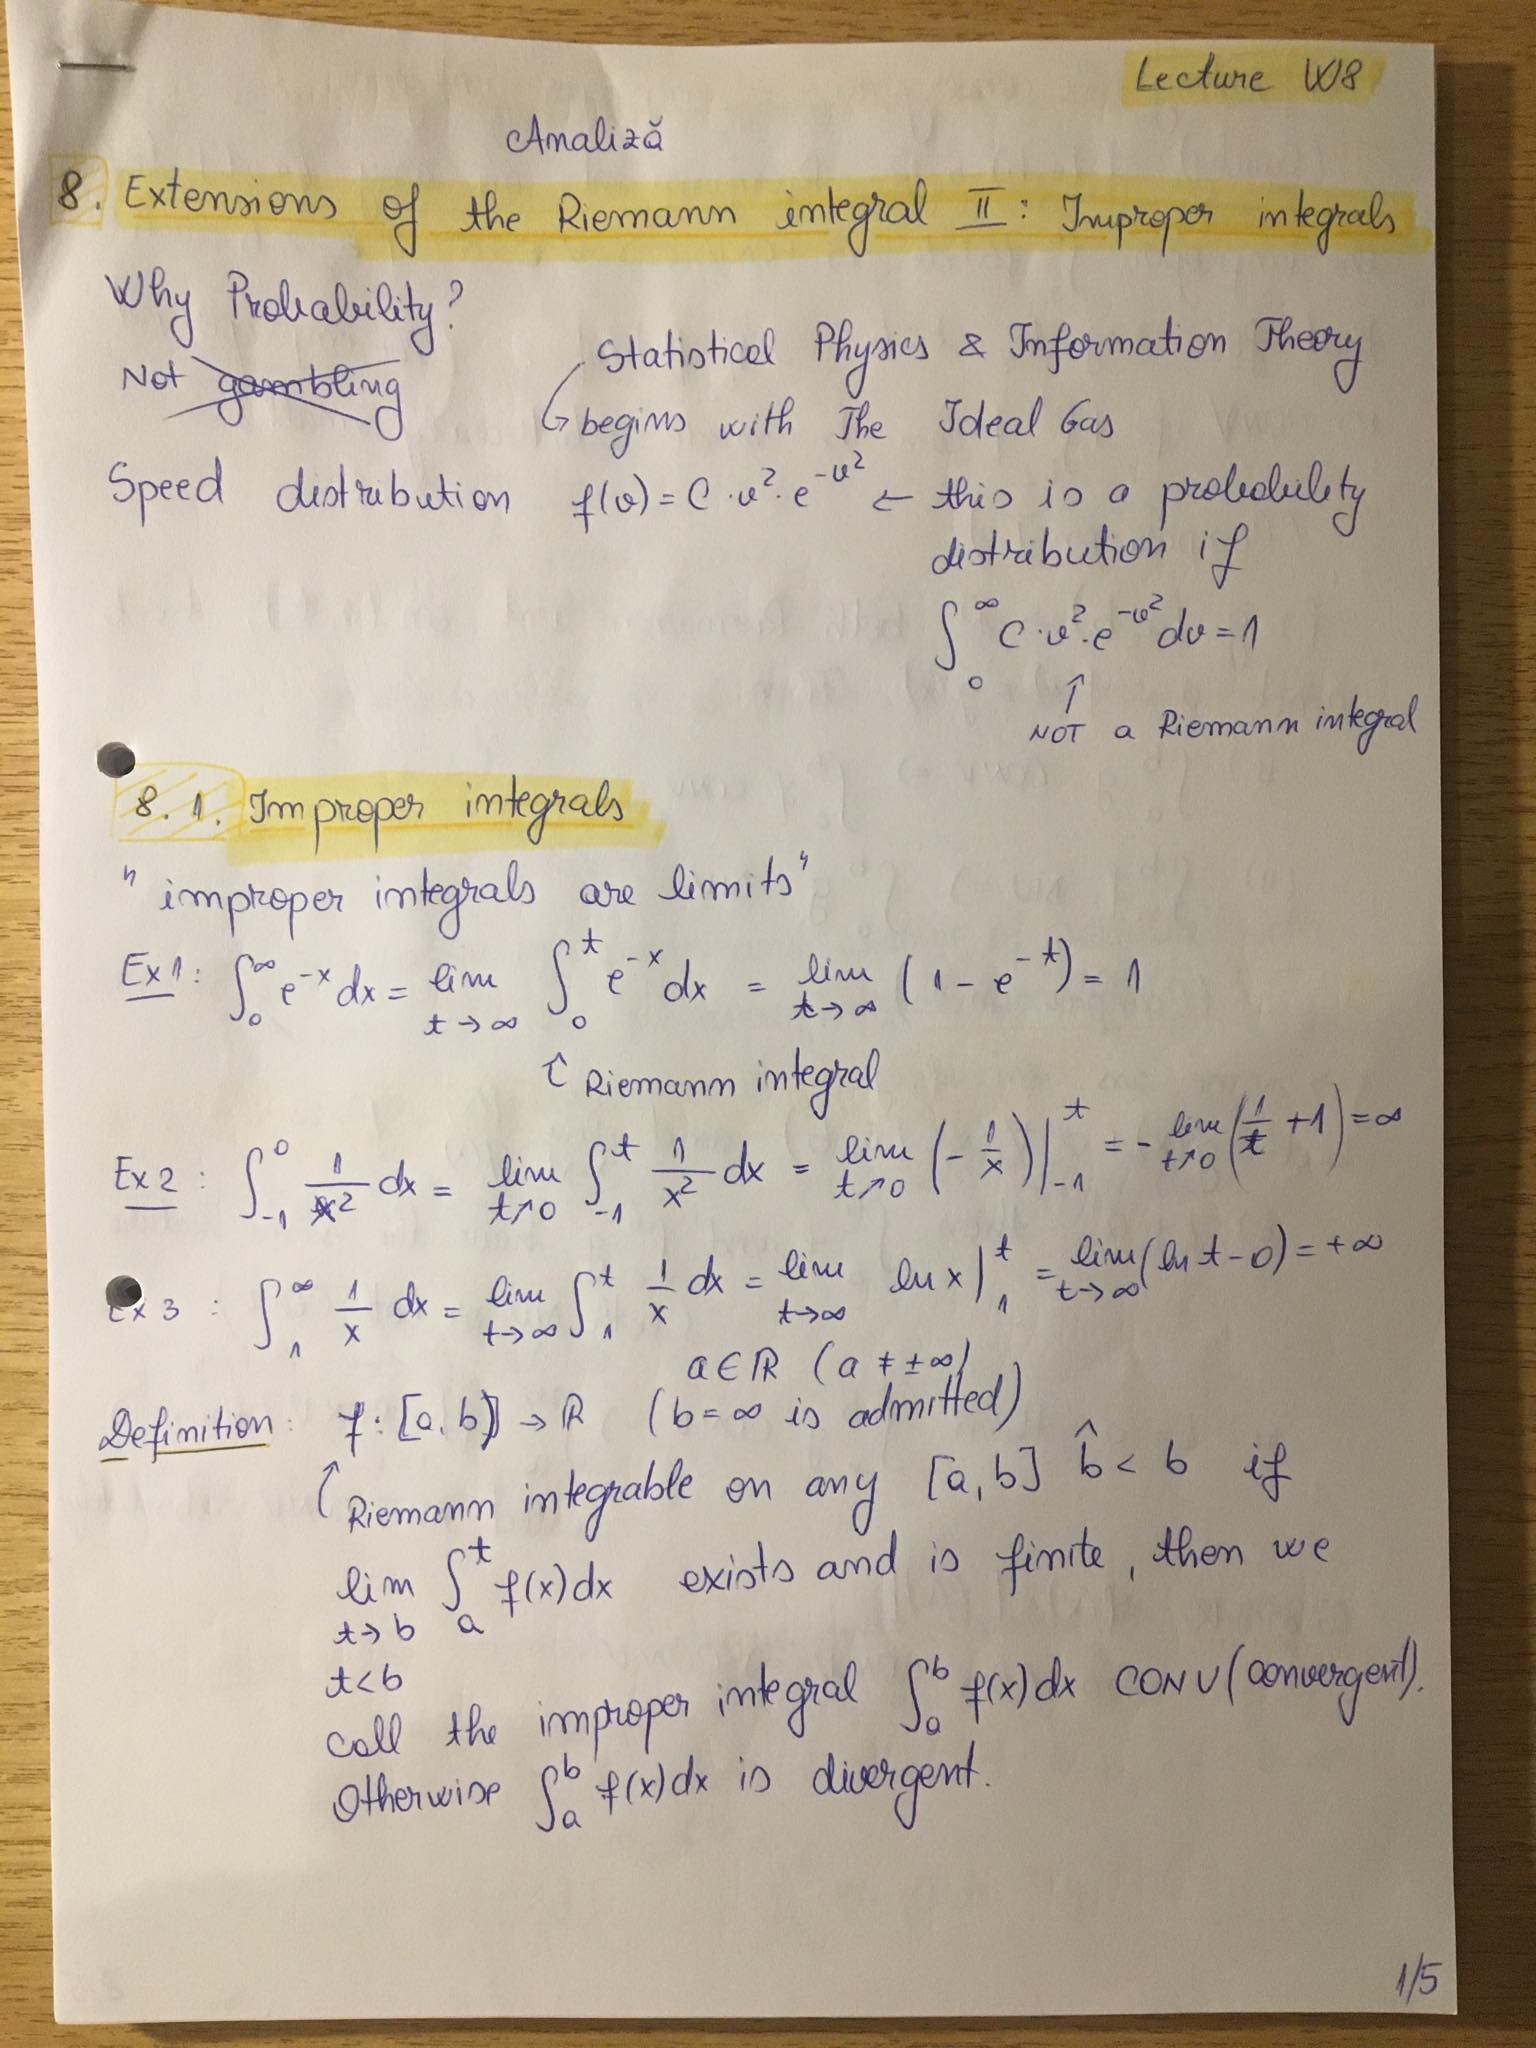 Lecture W8
Analiză
8. Extensions of the Riemann integral II: Improper integrals
Why Probability?
Not gambling
Statistical Physics & Information Theory
↳ begins with The Ideal Gas
Speed distribution f(v) = C·v²·e^{-v²} ← this is a probability
distribution if
∫_0^∞ C·v²·e^{-v²} dv = 1
↑
NOT a Riemann integral
8.1. Improper integrals
" improper integrals are limits "
Ex1: ∫_0^∞ e^{-x} dx = lim_{t→∞} ∫_0^t e^{-x} dx = lim_{t→∞} (1 - e^{-t}) = 1
↑ Riemann integral
Ex2: ∫_{-1}^0 1/x² dx = lim_{t↗0} ∫_{-1}^t 1/x² dx = lim_{t↗0} (-1/x)|_{-1}^t = -lim_{t↗0} (1/t + 1) = ∞
Ex3: ∫_1^∞ 1/x dx = lim_{t→∞} ∫_1^t 1/x dx = lim_{t→∞} ln x|_1^t = lim_{t→∞} (ln t - 0) = +∞
a ∈ ℝ (a ≠ ±∞)
Definition: f: [a, b) → ℝ (b = ∞ is admitted)
↑ Riemann integrable on any [a, b] b̂ < b if
lim_{t→b, t<b} ∫_a^t f(x) dx exists and is finite, then we
call the improper integral ∫_a^b f(x) dx CONV (convergent).
Otherwise ∫_a^b f(x) dx is divergent.
1/5